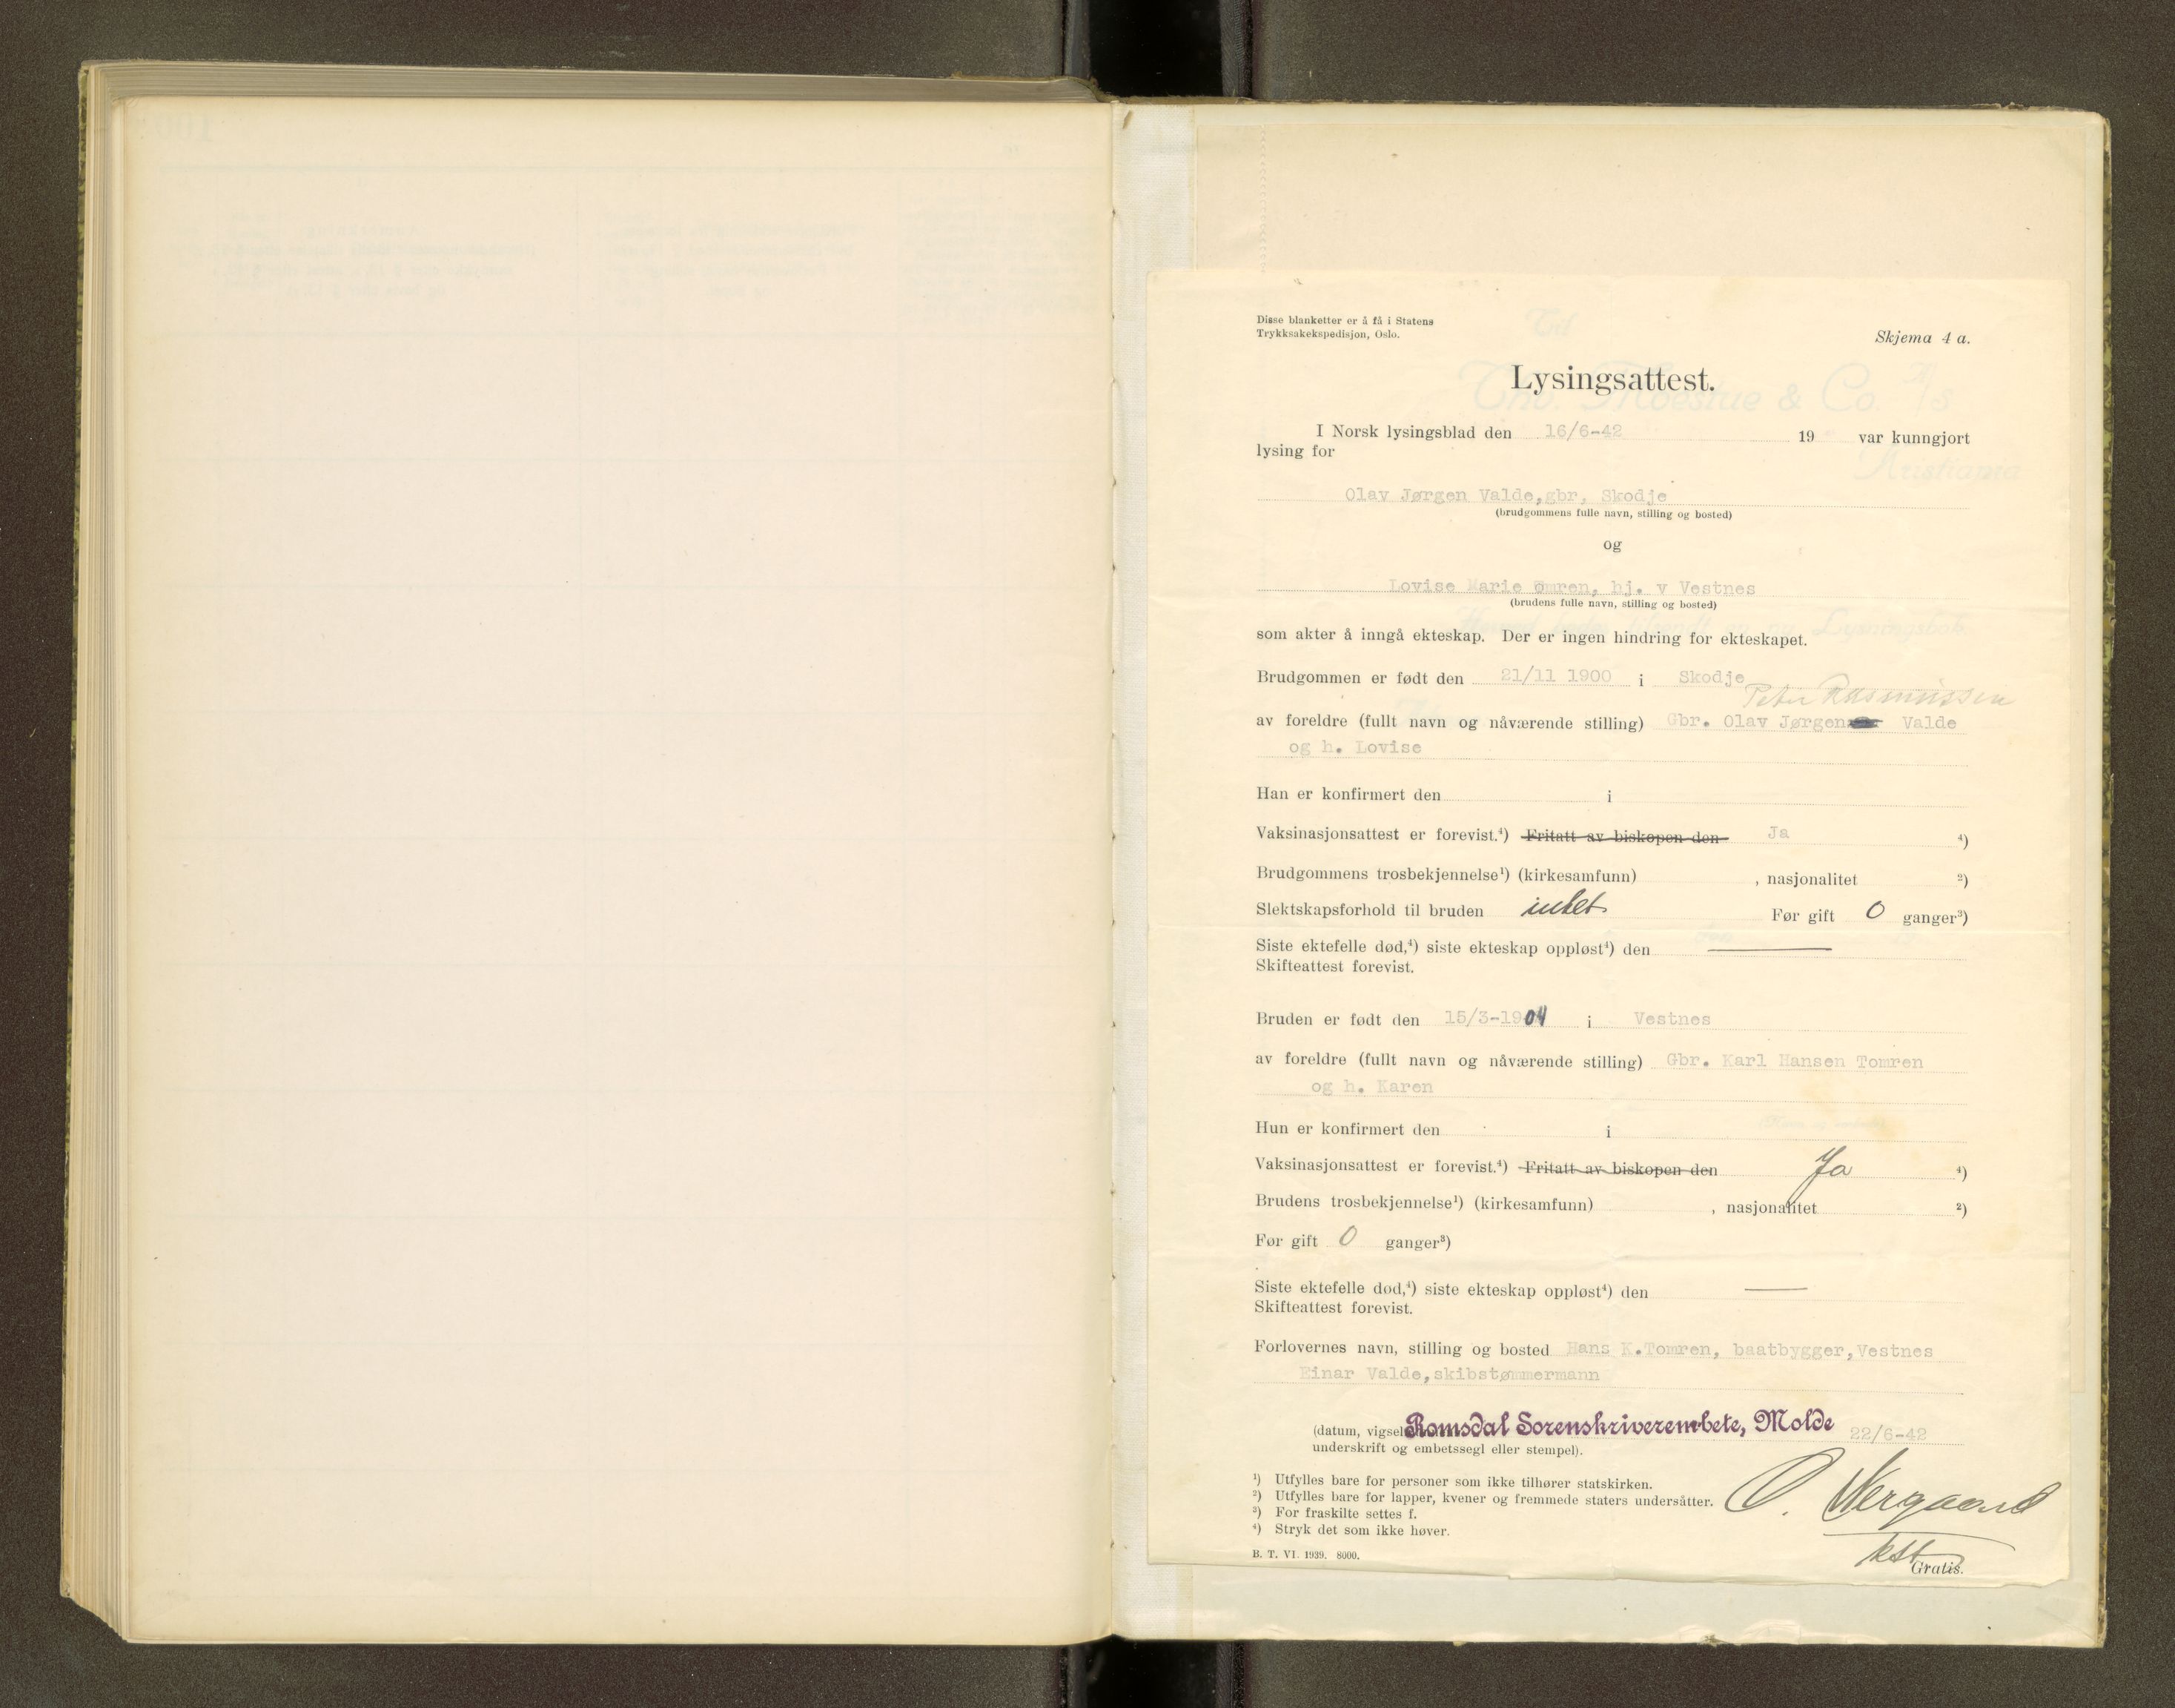 Disse blanketter er å få i Statens
Trykksakekspedisjon, Oslo.
Skjema 4 a.
Lysingsattest.
I Norsk lysingsblad den 16/6-42 19 var kunngjort
lysing for
Olav Jørgen Valde,gbr, Skodje
(brudgommens fulle navn, stilling og bosted)
og
Lovise Marie Tomren, hj. v Vestnes
(brudens fulle navn, stilling og bosted)
som akter å inngå ekteskap. Der er ingen hindring for ekteskapet.
Brudgommen er født den 21/11 1900 i Skodje
Peter Rasmussen
av foreldre (fullt navn og nåværende stilling) Gbr. Olav Jørgen Valde
og h. Lovise
Han er konfirmert den i
Vaksinasjonsattest er forevist.⁴) Fritatt av biskopen den Ja ⁴)
Brudgommens trosbekjennelse¹) (kirkesamfunn) , nasjonalitet ²)
Slektskapsforhold til bruden intet Før gift 0 ganger³)
Siste ektefelle død,⁴) siste ekteskap oppløst⁴) den —
Skifteattest forevist.
Bruden er født den 15/3-1904 i Vestnes
av foreldre (fullt navn og nåværende stilling) Gbr. Karl Hansen Tomren
og h. Karen
Hun er konfirmert den i
Vaksinasjonsattest er forevist.⁴) Fritatt av biskopen den Ja ⁴)
Brudens trosbekjennelse¹) (kirkesamfunn) , nasjonalitet ²)
Før gift 0 ganger³)
Siste ektefelle død,⁴) siste ekteskap oppløst⁴) den —
Skifteattest forevist.
Forlovernes navn, stilling og bosted Hans K.Tomren, baatbygger,Vestnes
Einar Valde,skibstømmermann
(datum, vigsel Romsdal Sorenskriverembete, Molde 22/6-42
underskrift og embetssegl eller stempel).
¹) Utfylles bare for personer som ikke tilhører statskirken.
²) Utfylles bare for lapper, kvener og fremmede staters undersåtter.
³) For fraskilte settes f.
⁴) Stryk det som ikke høver.
B. T. VI. 1939. 8000.
Gratis.